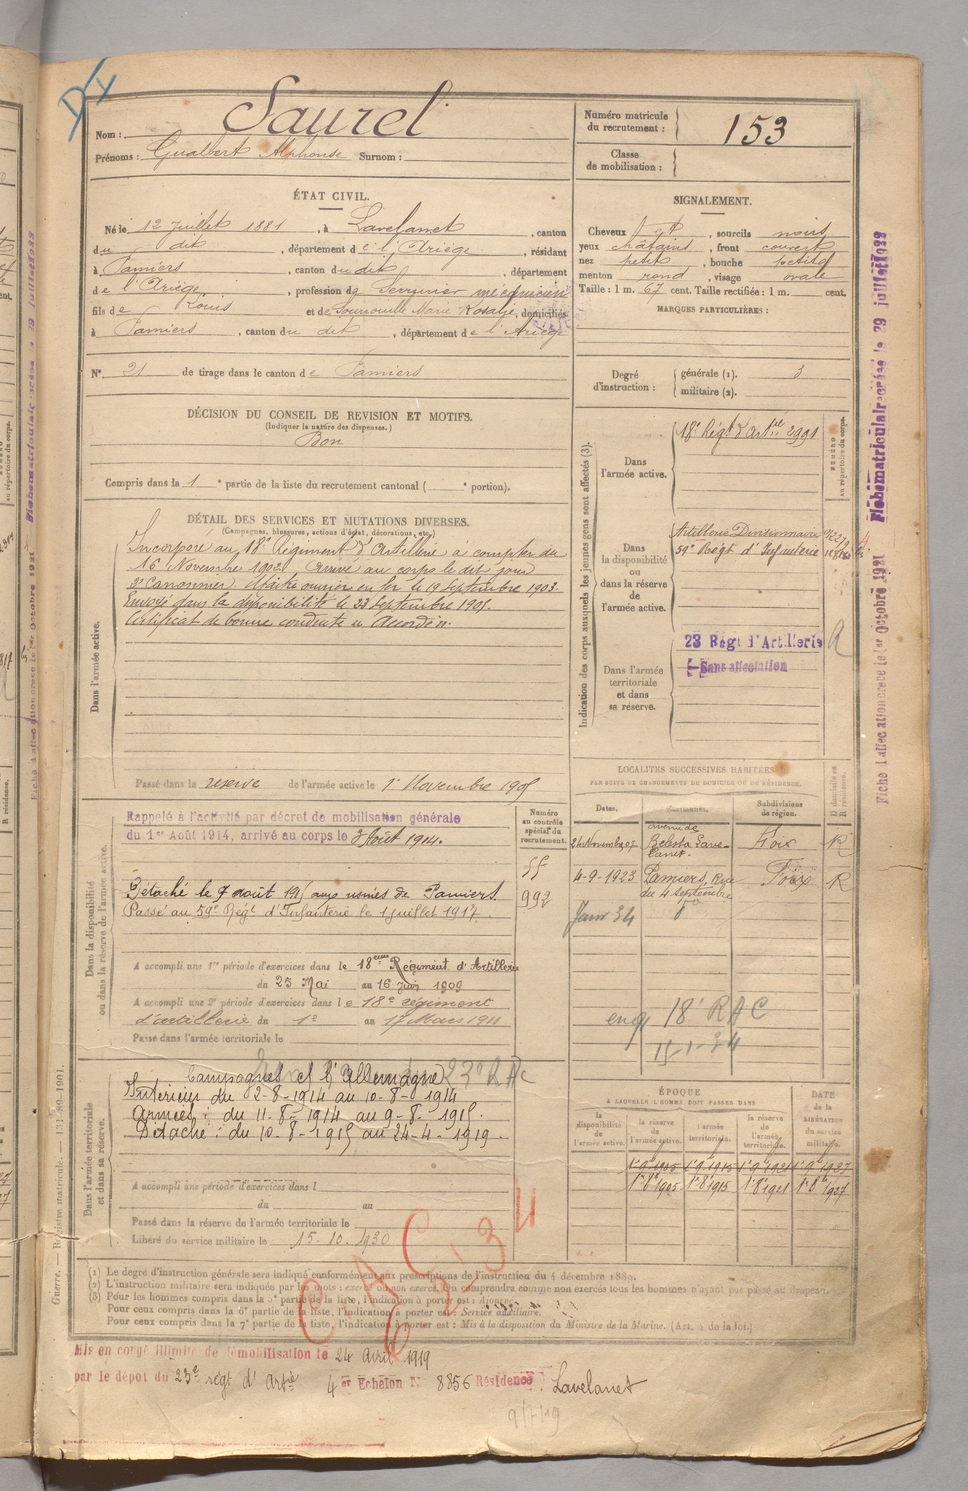 Nom : Saurel
Prénoms : Gualbert Alphonse Surnom :
Numéro matricule du recrutement : 153
Classe de mobilisation :
ÉTAT CIVIL.
Né le 12 Juillet 1881, à Lavelanet, canton
du dit, département de l'Ariège, résidant
à Pamiers, canton du dit, département
de l'Ariège, profession de Serrurier mécanicien
fils de Louis et de Marie Rosalie, domiciliés
à Pamiers, canton du dit, département de l'Ariège
N° 21 de tirage dans le canton de Pamiers
SIGNALEMENT.
Cheveux, sourcils noirs
yeux châtains, front couvert
nez petit, bouche petite
menton rond, visage ovale
Taille : 1 m. 67 cent. Taille rectifiée : 1 m. cent.
MARQUES PARTICULIÈRES :
Degré d'instruction : générale (1). 3
militaire (2).
DÉCISION DU CONSEIL DE REVISION ET MOTIFS.
(Indiquer la nature des dispenses.)
Bon
Compris dans la 1e partie de la liste du recrutement cantonal ( e portion).
DÉTAIL DES SERVICES ET MUTATIONS DIVERSES.
(Campagnes, blessures, actions d'éclat, décorations, etc.)
Dans l'armée active.
Incorporé au 18e Régiment d'Artillerie à compter du
16 Novembre 1902. Arrivé au corps le dit jour
2e Canonnier. ouvrier en fer le 19 Septembre 1903.
Envoyé dans la disponibilité le 23 Septembre 1905.
Certificat de bonne conduite Accordé.
Passé dans la réserve de l'armée active le 1er Novembre 1905
Indication des corps auxquels les jeunes gens sont affectés (3).
NUMÉRO au répertoire du corps.
Dans l'armée active.
18e Régt d'Artie 2991
Dans la disponibilité ou dans la réserve de l'armée active.
Artillerie Divisionnaire
59e Régt d'Infanterie
Dans l'armée territoriale et dans sa réserve.
23 Régt d'Artillerie
Sans affectation
Fiche matriculaire créée le 29 juillet 1922
Fiche d'affectation créée le 1er Octobre 1921
Dans la disponibilité ou dans la réserve de l'armée active.
Rappelé à l'activité par décret de mobilisation générale
du 1er Août 1914, arrivé au corps le 3 Août 1914.
Détaché le 9 août 1915 aux usines de Pamiers.
Passé au 59e Régt d'Infanterie le 1 juillet 1917.
Numéro au contrôle spécial du recrutement.
55
992
A accompli une 1re période d'exercices dans le 18ème Régiment d'Artillerie
du 25 Mai au 16 Juin 1909
A accompli une 2e période d'exercices dans le 18e régiment
d'artillerie du 1er au 17 Mars 1911
Passé dans l'armée territoriale le
LOCALITÉS SUCCESSIVES HABITÉES
PAR SUITE DE CHANGEMENTS DE DOMICILE OU DE RÉSIDENCE.
Dates. Communes. Subdivisions de région. D domicile ou R résidence.
avenue de Belesta Lavelanet. Foix R
4-9-1923 Pamiers, Rue du 4 septembre Foix R
Janv 34
18e RAC
15-1-34
Dans l'armée territoriale et dans sa réserve.
23e RAC
Campagnes ct l'Allemagne
Intérieur du 2-8-1914 au 10-8-1914
Armées : du 11-8-1914 au 9-8-1915.
Détaché : du 10-8-1915 au 24-4-1919.
A accompli une période d'exercices dans l
du au
Passé dans la réserve de l'armée territoriale le
Libéré du service militaire le 15-10-1930
ÉPOQUE
À LAQUELLE L'HOMME DOIT PASSER DANS
DATE de la LIBÉRATION du service militaire.
la disponibilité de l'armée active. la réserve de l'armée active. l'armée territoriale. la réserve de l'armée territoriale.
1-9-1905 1-9-1915 1-9-1921 1-9-1927
1-8-1905 1-8-1915 1-8-1921 1-8-1927
(1) Le degré d'instruction générale sera indiqué conformément aux prescriptions de l'instruction du 4 décembre 1889.
(2) L'instruction militaire sera indiquée par les mots : exercé ou non exercé. On comprendra comme non exercés tous les hommes n'ayant pas passé au drapeau.
(3) Pour les hommes compris dans la 5e partie de la liste, l'indication à porter est : Ajourné.
Pour ceux compris dans la 6e partie de la liste, l'indication à porter est : Service auxiliaire.
Pour ceux compris dans la 7e partie de la liste, l'indication à porter est : Mis à la disposition du Ministre de la Marine. (Art. 4 de la loi.)
Mis en congé illimité de démobilisation le 24 avril 1919
par le dépôt du 23e régt d'Artie 4er Echelon N° 8856 Résidence : Lavelanet
Guerre. — Registre matricule. — 131-89-1901.